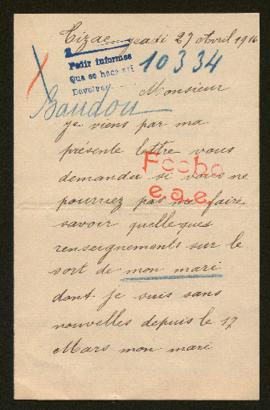 Cizac jeudi 27 Avril 1916
1
Pedir informes
Que se haga así
Devolver
10334
Baudou
Monsieur
je viens par ma
présente lettre vous
demander si vous ne
pourriez pas me faire
savoir quelleques
renseignements sur le
sort de mon mari
dont je suis sans
nouvelles depuis le 17
Mars mon mari